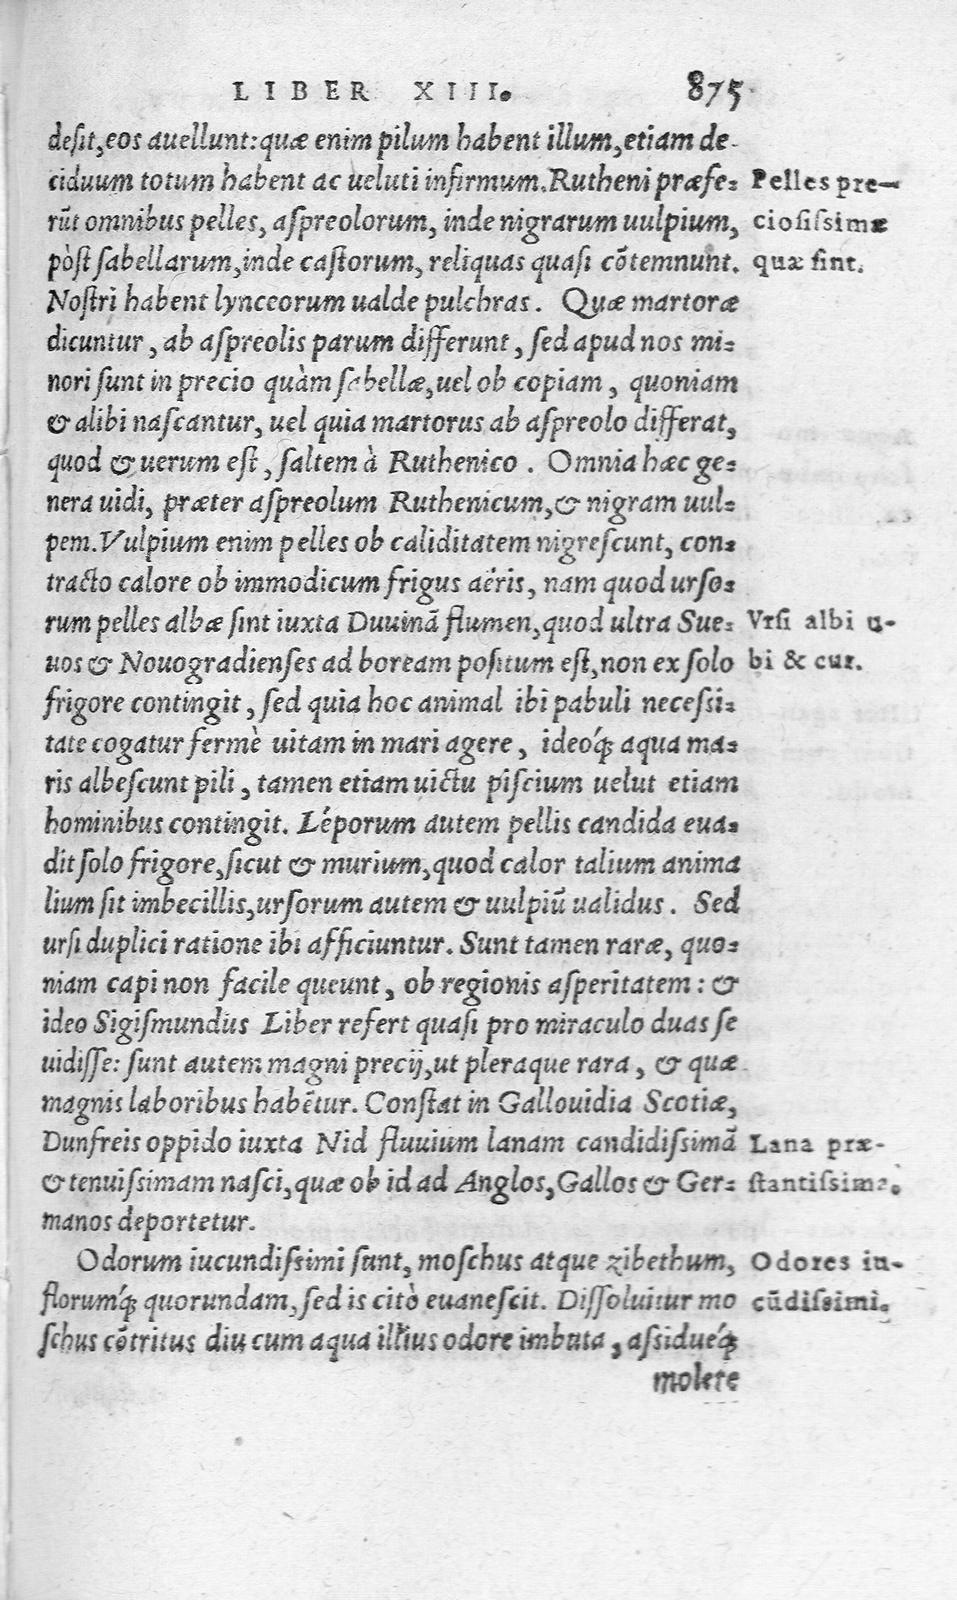 LIBER XIII. 875
desit, eos auellunt: quæ enim pilum habent illum, etiam de-
ciduum totum habent ac ueluti infirmum. Rutheni præfe- Pelles pre-
rũt omnibus pelles, aspreolorum, inde nigrarum uulpium, ciosissimæ
pòst sabellarum, inde castorum, reliquas quasi cõtemnunt. quæ sint.
Nostri habent lynceorum ualde pulchras. Quæ martoræ
dicuntur, ab aspreolis parum differunt, sed apud nos mi-
nori sunt in precio quàm sabellæ, uel ob copiam, quoniam
& alibi nascantur, uel quia martorus ab aspreolo differat,
quod & uerum est, saltem à Ruthenico. Omnia hæc ge-
nera uidi, præter aspreolum Ruthenicum, & nigram uul-
pem. Vulpium enim pelles ob caliditatem nigrescunt, con-
tracto calore ob immodicum frigus aëris, nam quod urso-
rum pelles albæ sint iuxta Duuinã flumen, quod ultra Sue- Vrsi albi u-
uos & Nouogradienses ad boream positum est, non ex solo bi & cur.
frigore contingit, sed quia hoc animal ibi pabuli necessi-
tate cogatur fermè uitam in mari agere, ideoq́; aqua ma-
ris albescunt pili, tamen etiam uictu piscium uelut etiam
hominibus contingit. Léporum autem pellis candida eua-
dit solo frigore, sicut & murium, quod calor talium anima
lium sit imbecillis, ursorum autem & uulpiũ ualidus. Sed
ursi duplici ratione ibi afficiuntur. Sunt tamen raræ, quo-
niam capi non facile queunt, ob regionis asperitatem: &
ideo Sigismundus Liber refert quasi pro miraculo duas se
uidisse: sunt autem magni precij, ut pleraque rara, & quæ
magnis laboribus habẽtur. Constat in Gallouidia Scotiæ,
Dunfreis oppido iuxta Nid fluuium lanam candidissimã Lana præ-
& tenuissimam nasci, quæ ob id ad Anglos, Gallos & Ger- stantissima.
manos deportetur.
Odorum iucundissimi sunt, moschus atque zibethum, Odores iu-
florumq́; quorundam, sed is citò euanescit. Dissoluitur mo cũdissimi.
schus cõtritus diu cum aqua illius odore imbuta, assidueq́;
molere